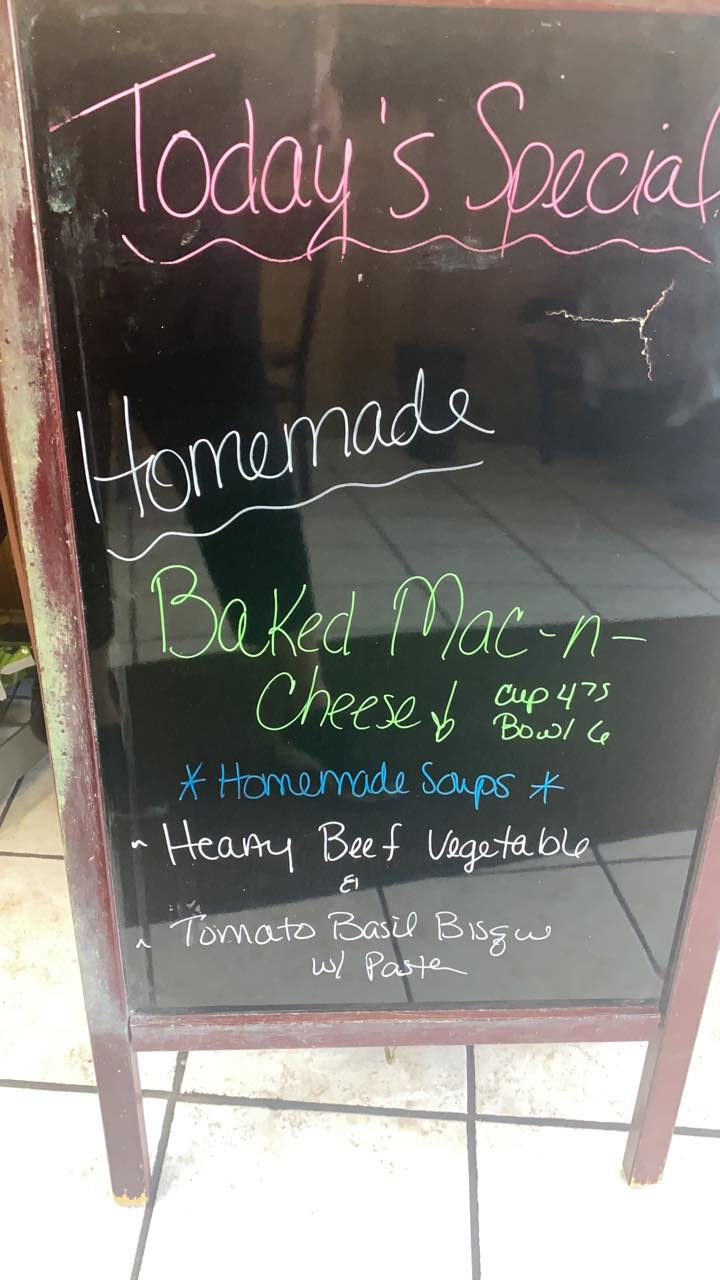 Today's Special
Homemade
Baked Mac-n-
Cheese
Cup 475
Bowl 6
* Homemade Soups *
~ Hearty Beef Vegetable
&
~ Tomato Basil Bisque
w/ Pasta